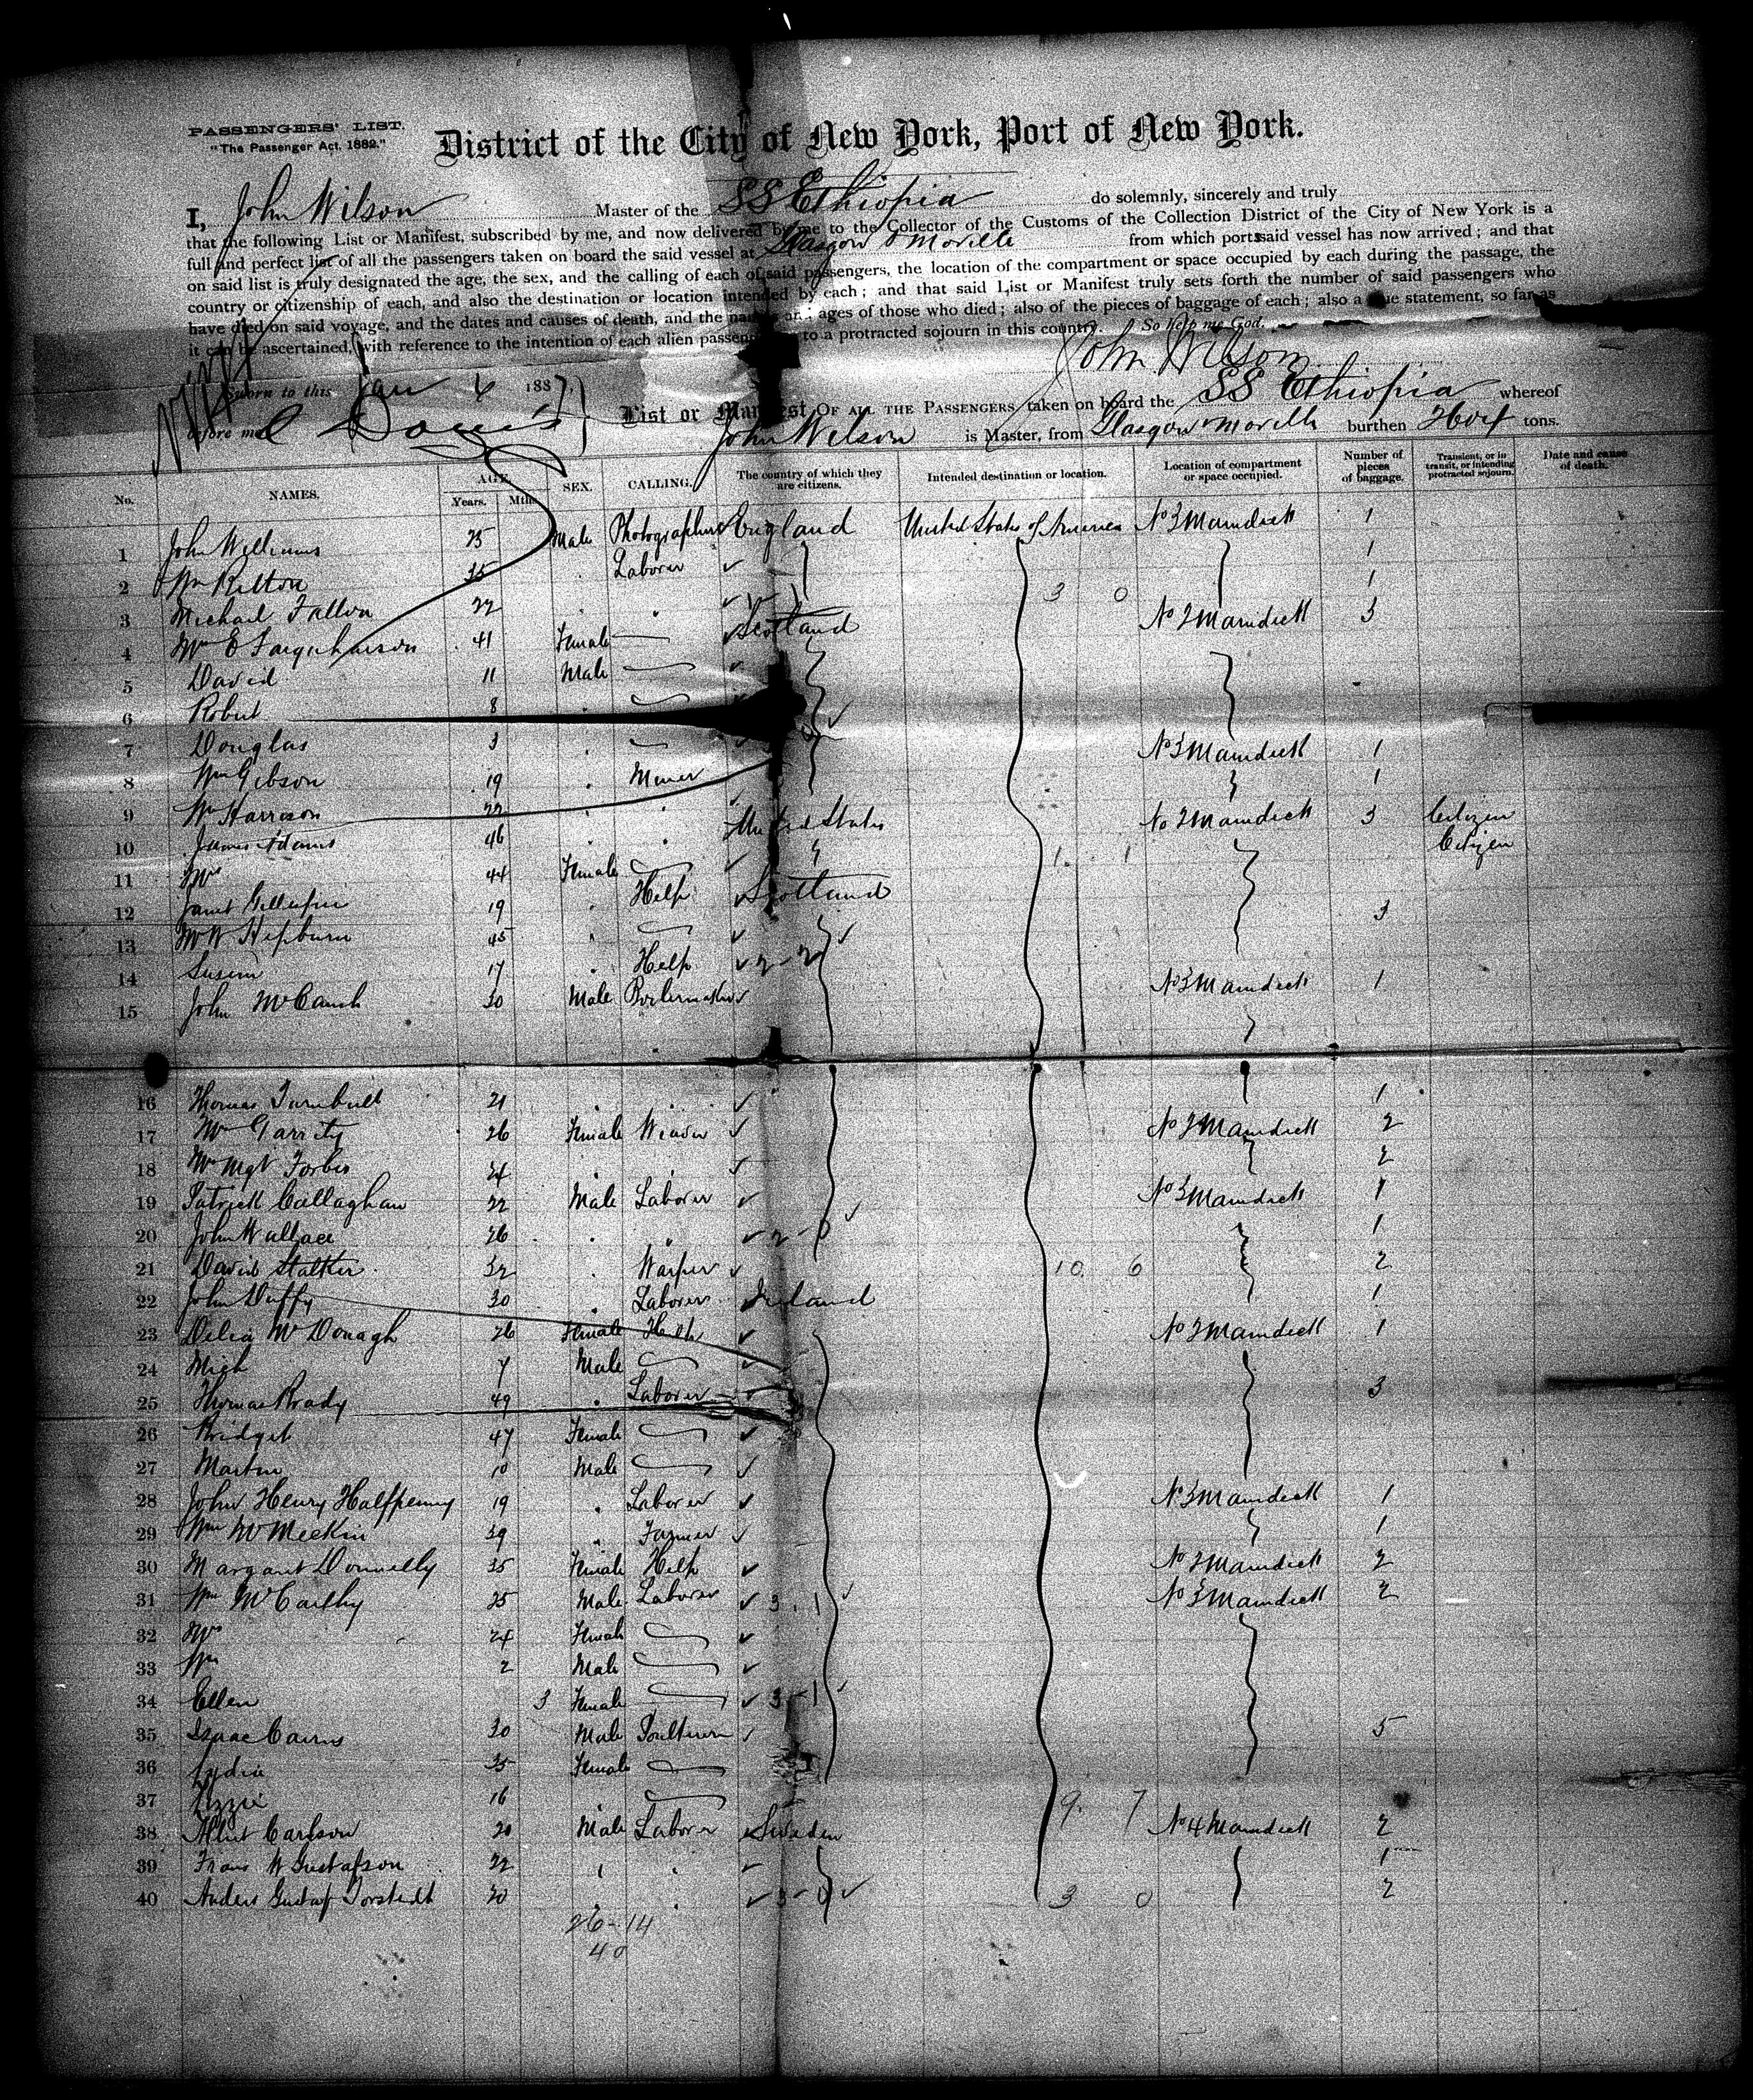 PASSENGERS' LIST.
"The Passenger Act, 1882."
District of the City of New York, Port of New York.
I, John Wilson Master of the SS Ethiopia do solemnly, sincerely and truly
that the following List or Manifest, subscribed by me, and now delivered by me to the Collector of the Customs of the Collection District of the City of New York is a
full and perfect list of all the passengers taken on board the said vessel at Glasgow & Moville from which ports said vessel has now arrived; and that
on said list is truly designated the age, the sex, and the calling of each of said passengers, the location of the compartment or space occupied by each during the passage, the
country or citizenship of each, and also the destination or location intended by each; and that said List or Manifest truly sets forth the number of said passengers who
have died on said voyage, and the dates and causes of death, and the names and ages of those who died; also of the pieces of baggage of each; also a true statement, so far as
it can be ascertained, with reference to the intention of each alien passenger to a protracted sojourn in this country. So help me God.
John Wilson
Sworn to this Jan 6 1887
before me
List or Manifest OF ALL THE PASSENGERS taken on board the SS Ethiopia whereof
John Wilson is Master, from Glasgow & Moville burthen tons.
No. NAMES. AGE. Years. Mths. SEX. CALLING. The country of which they are citizens. Intended destination or location. Location of compartment or space occupied. Number of pieces of baggage. Transient, or in transit, or intending protracted sojourn. Date and cause of death.
1 John Williams 25 Male Photographer England United States of America No 3 Maindeck 1
2 Wm Kilton 35 " Laborer 1
3 Michael Fallon 22 " " 1
3 0
4 Mrs E Farquharson 41 Female Scotland No 2 Maindeck 3
5 David 11 Male
6 Robert 8 "
7 Douglas 3 "
8 Wm Gibson 19 " Miner No 3 Maindeck 1
9 Wm Harrison 22 " " 1
10 James Adams 46 " " United States No 2 Maindeck 3 Citizen
11 Mrs 44 Female Citizen
1. 1
12 Janet Gillespie 19 " Help Scotland
13 Mrs W Hepburn 45 " 3
14 Susan 17 " Help 2-2
15 John McCaush 30 Male Boilermaker No 3 Maindeck 1
16 Thomas Turnbull 21 " " 1
17 Mrs Garrity 26 Female Weaver No 2 Maindeck 2
18 Mrs Mgt Forbes 24 " " 2
19 Patrick Callaghan 22 Male Laborer No 3 Maindeck 1
20 John Wallace 26 " " 2-0 1
21 David Stalker 32 " Warper 2
10. 6
22 John Duffy 30 " Laborer Ireland 1
23 Delia McDonagh 26 Female Help No 2 Maindeck 1
24 Mich 7 Male
25 Thomas Brady 49 " Laborer 3
26 Bridget 47 Female
27 Martin 10 Male
28 John Henry Halfpenny 19 " Laborer No 3 Maindeck 1
29 Wm McMeekin 39 " Farmer 1
30 Margaret Donnelly 35 Female Help No 2 Maindeck 2
31 Wm McCarthy 25 Male Laborer 3.1 No 3 Maindeck 2
32 Mrs 24 Female
33 Wm 2 Male
34 Ellen 3 Female 3-1
35 Isaac Cairns 30 Male 5
36 Lydia 35 Female
37 Lizzie 16 "
9. 7
38 Albert Carlson 20 Male Laborer Sweden No 4 Maindeck 2
39 Frans W Gustafson 22 " " 1
40 Anders Gustaf Torstedt 20 " " 3-0 2
3 0
26-14
40